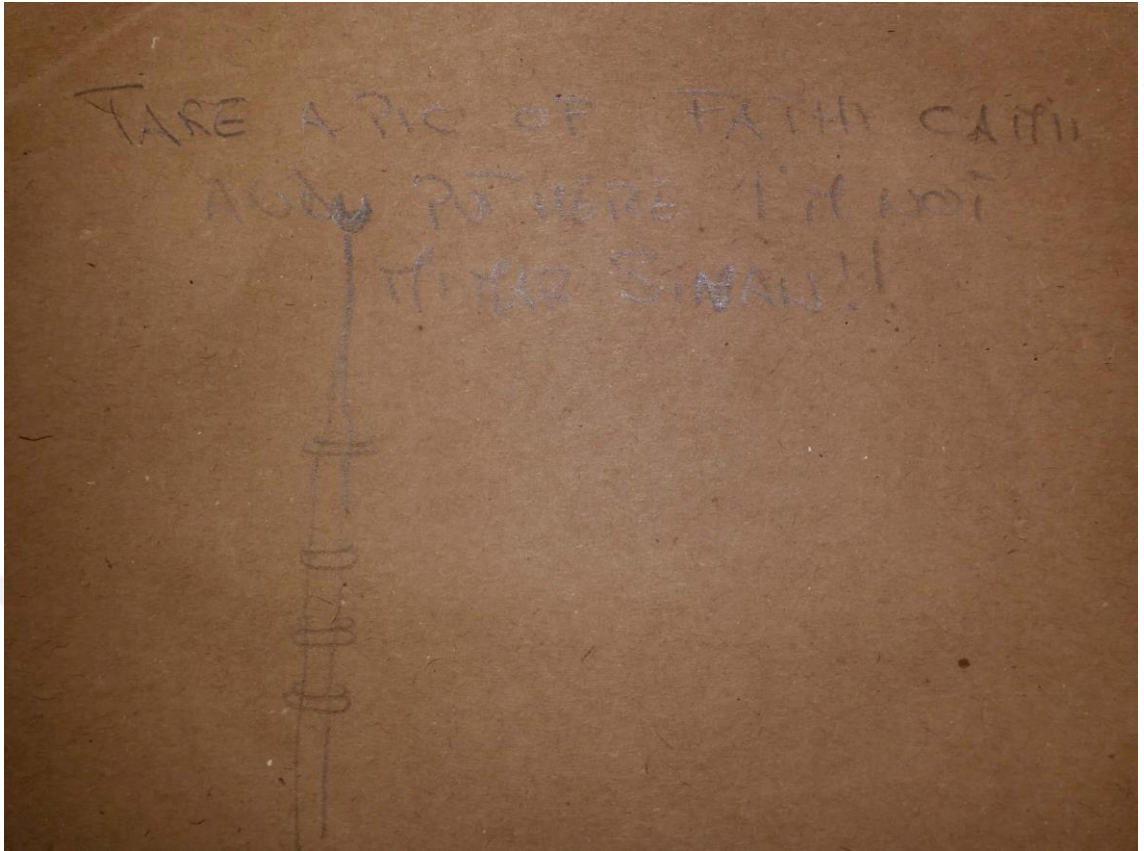 TAKE A PIC OF FATIHI CAMII
AND PUT HERE, I'M NOT
MIMAR SINAN!!